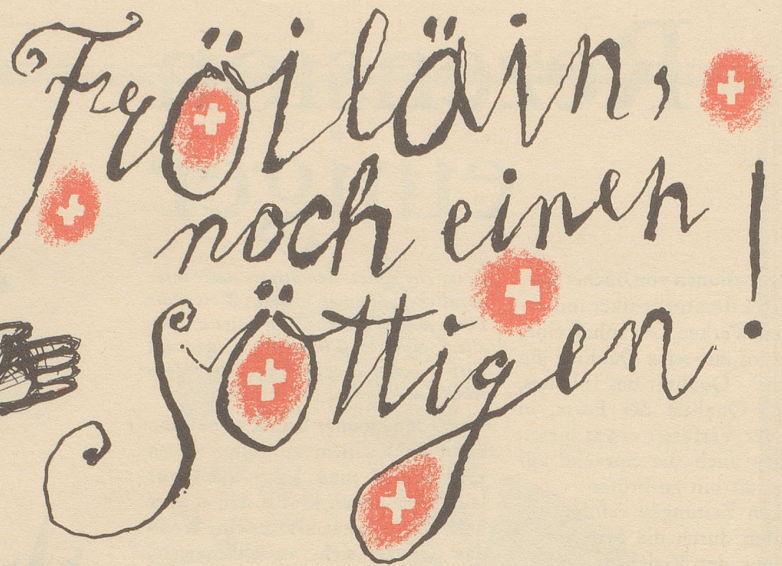 Fröiläin,
noch einen
Söttigen!